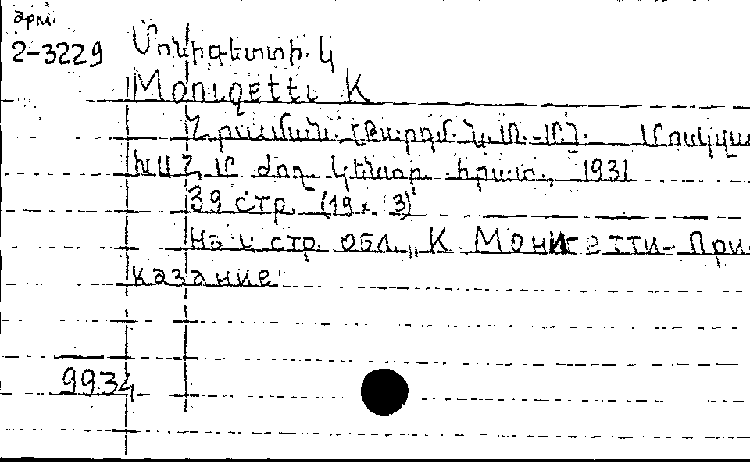 2-3229
Մոնիգետտի. Կ
Monigetti K
Հրաման. (Թարգմ. Ն. Մ.-Մ.). Մոսկվա
ԽՍՀՄ ժող. կենտր. հրատ., 1931
39 стр. (19x 3)
На стр. обл., К Монигетти- При-
казание
9934